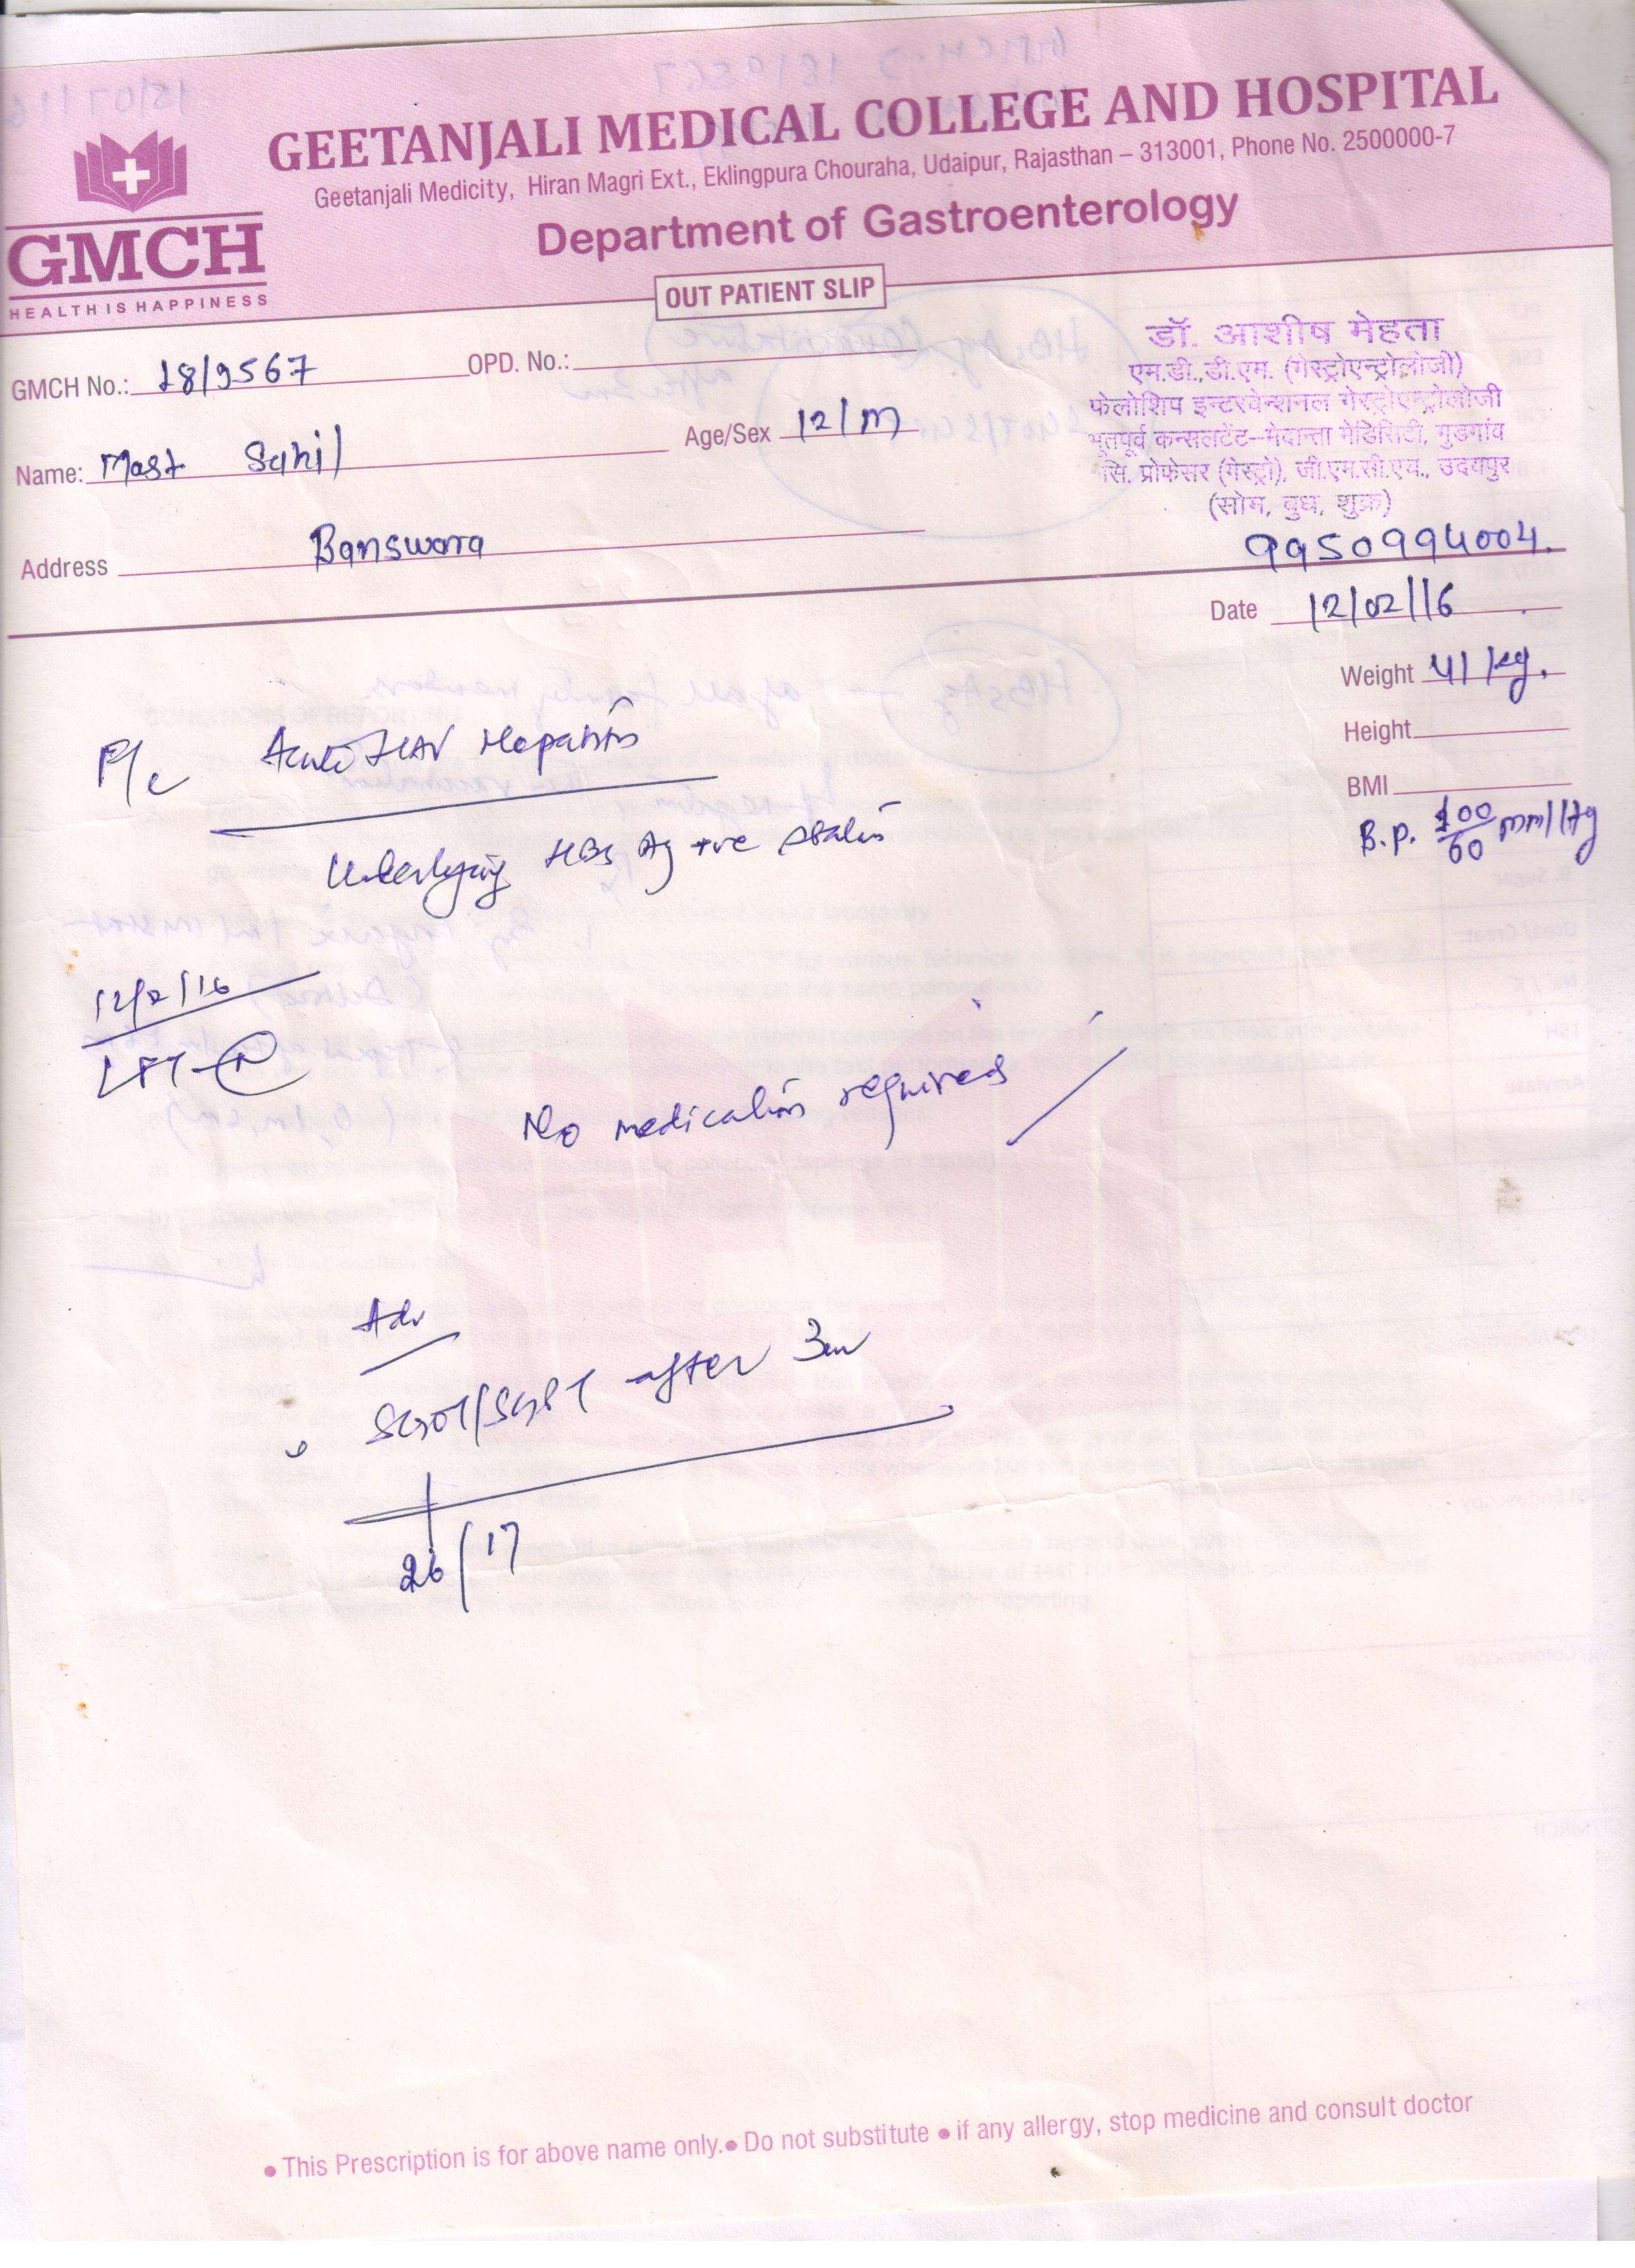 GEETANJALI MEDICAL COLLEGE AND HOSPITAL
Geetanjali Medicity, Hiran Magri Ext., Eklingpura Chouraha, Udaipur, Rajasthan – 313001, Phone No. 2500000-7
Department of Gastroenterology
GMCH
HEALTH IS HAPPINESS
OUT PATIENT SLIP
डॉ. आशीष मेहता
एम.डी.,डी.एम. (गेस्ट्रोएन्ट्रोलोजी)
फेलोशिप इन्टरवेन्शनल गेस्ट्रोएन्ट्रोलोजी
भूतपूर्व कन्सलटेंट–मेदान्ता मेडिसिटी, गुडगांव
सि. प्रोफेसर (गेस्ट्रो), जी.एम.सी.एच., उदयपुर
(सोम, बुध, शुक्र)
9950994004.
GMCH No.: 1819567 OPD. No.:
Name: Mast Sahil Age/Sex 12/M
Address Banswara
Date 12/02/16
Weight 41 kg.
Height
BMI
B.p. 100/60 mm/Hg
F/c Acute HAV Hepatitis
Underlying HBs Ag +ve status
12/2/16
LFT - N
No medication required
Adv
SGOT/SGPT after 3m
26/17
• This Prescription is for above name only. • Do not substitute • if any allergy, stop medicine and consult doctor